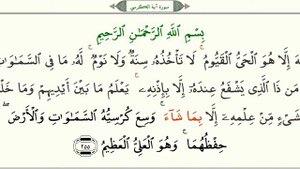 سورة آية الكرسي
بِسْمِ اللَّهِ الرَّحْمَٰنِ الرَّحِيمِ
إِلَّا هُوَ الْحَيُّ الْقَيُّومُ ۚ لَا تَأْخُذُهُ سِنَةٌ وَلَا نَوْمٌ ۚ لَهُ مَا فِي السَّمَاوَاتِ
مَن ذَا الَّذِي يَشْفَعُ عِندَهُ إِلَّا بِإِذْنِهِ ۚ يَعْلَمُ مَا بَيْنَ أَيْدِيهِمْ وَمَا
مِّنْ عِلْمِهِ إِلَّا بِمَا شَاءَ ۚ وَسِعَ كُرْسِيُّهُ السَّمَاوَاتِ وَالْأَرْضَ ۖ
حِفْظُهُمَا ۚ وَهُوَ الْعَلِيُّ الْعَظِيمُ ﴿٢٥٥﴾